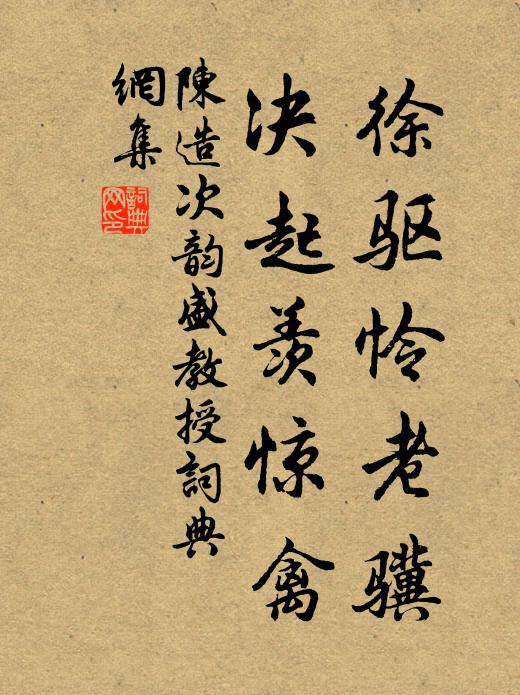 徐驱怜老骥
决起羡惊禽
陳造次韵盛教授詞典
網集
詞典
网印